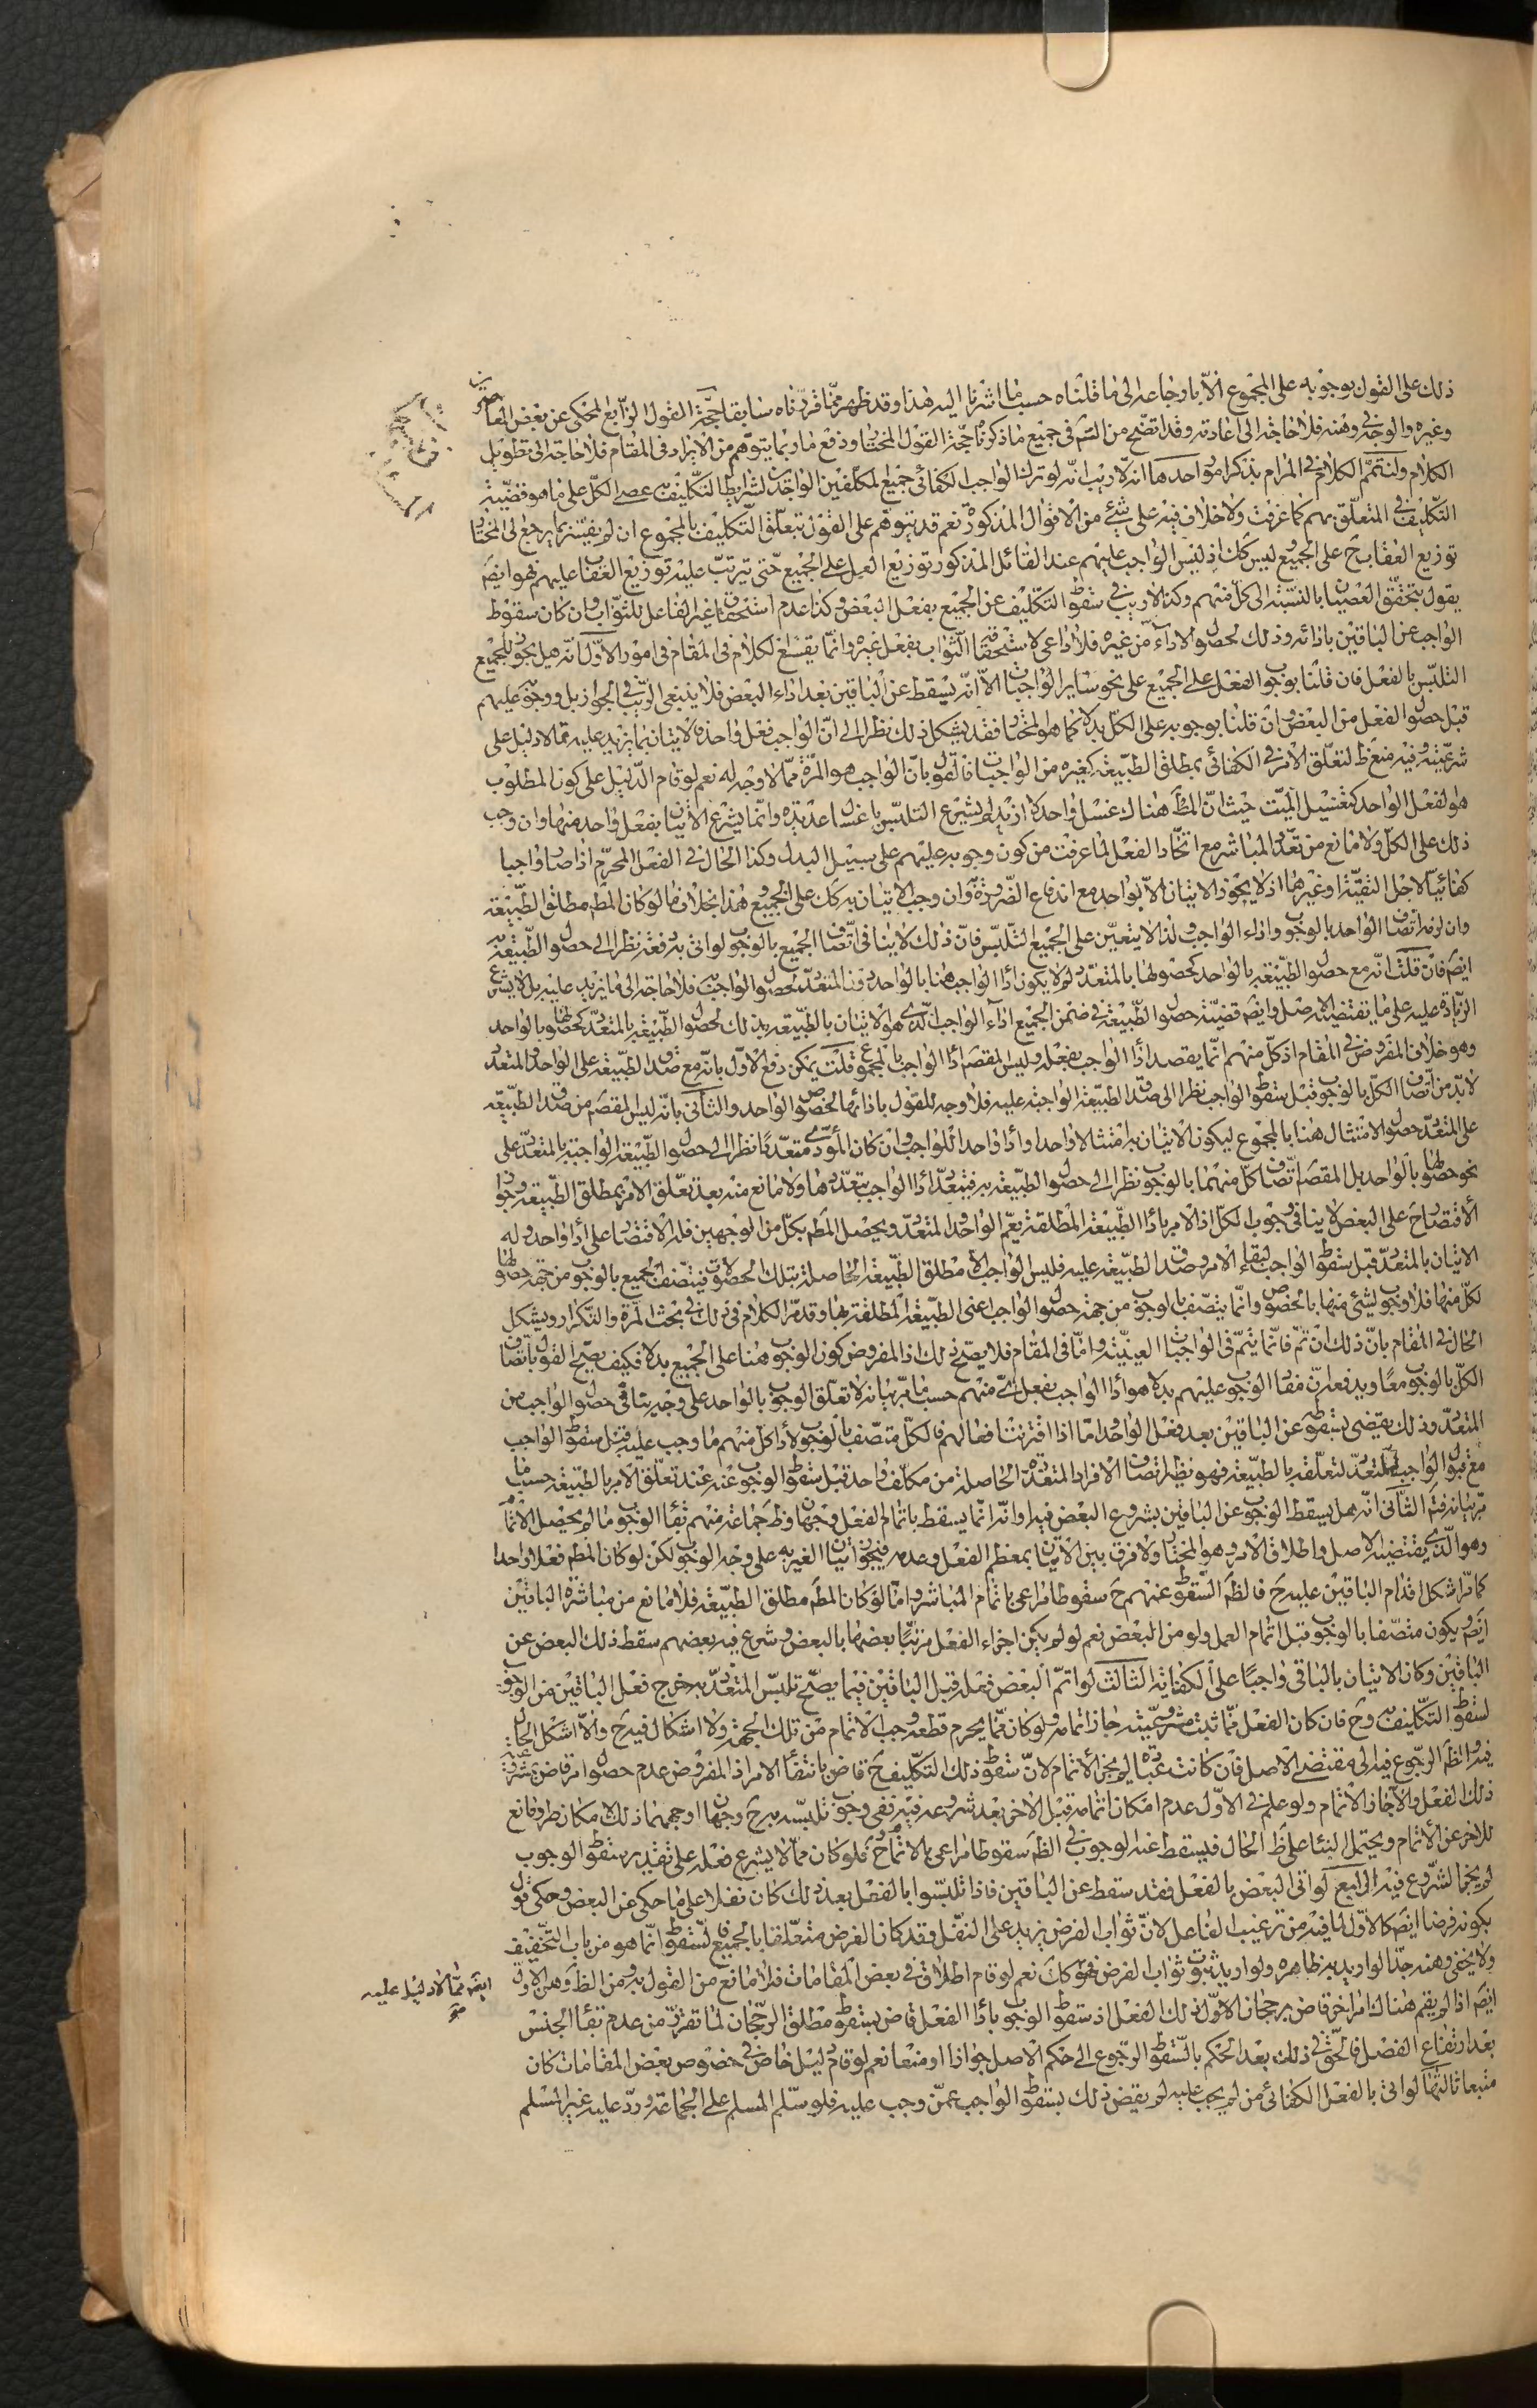 ذلك على القول بوجوبه على المجموع الا بارجاعه الى ما قلناه حسب ما اشرنا اليه هذا وقد ظهر مما قررناه سابقا حجة القول الرابع المحكي عن بعض المعاصرين
وغيره والوجه في وهنه فلا حاجة الى اعادته وقد اتضح من التم في جميع ما ذكرناه حجة القول المختار ودفع ما ربما يتوهم من الايراد في المقام فلا حاجة الى تطويل
الكلام ولنتمم الكلام في المرام بذكر امور احدها انه لا ريب انه لو ترك الواجب الكفائي جميع المكلفين الواجدين لشرايط التكليف به عصى الكل على ما هو قضية
التكليف المتعلق بهم كما عرفت ولا خلاف فيه على شيء من الاقوال المذكورة نعم قد يتوهم على القول بتعلق التكليف بالمجموع ان لم نفسره بما يرجع الى المختار
توزيع العقاب ح على الجميع ليس كك اذ ليس الواجب عليهم عند القائل المذكور توزيع العمل على الجميع حتى يترتب عليه توزيع العقاب عليهم فهو ايضا
يقول بتحقق العصيان بالنسبة الى كل منهم وكذا لا ريب في سقوط التكليف عن الجميع بفعل البعض وكذا عدم استحقاق غير الفاعل للثواب وان كان سقوط
الواجب عن الباقين بادائه وذلك لحصول الاداء من غيره فلا داعي لاستحقاقه الثواب بفعل غيره وانما يقع الكلام في المقام في امور الاول انه هل يجوز للجميع
التلبس بالفعل فان قلنا بوجوب الفعل على الجميع على نحو ساير الواجبات الا انه يسقط عن الباقين بعد اداء البعض فلا ينبغي الريب في الجواز بل ووجوبه عليهم
قبل حصول الفعل من البعض وان قلنا بوجوبه على الكل بدلا كما هو المختار فقد يشكل ذلك نظرا الى ان الواجب فعل واحد فالاتيان بما يزيد عليه مما لا دليل على
شرعيته وفيه منع ظ لتعلق الامر في الكفائي بمطلق الطبيعة كغيره من الواجبات فالقول بان الواجب هو المرة مما لا وجه له نعم لو قام الدليل على كون المطلوب
هو الفعل الواحد كتغسيل الميت حيث ان المط هناك غسل واحد لا ازيد لم يشرع التلبس باغسال عديدة وانما يشرع الاتيان بفعل واحد منها وان وجب
ذلك على الكل ولا مانع من تعدد المباشر مع اتحاد الفعل لما عرفت من كون وجوبه عليهم على سبيل البدل وكذا الحال في الفعل المحرم اذا صار واجبا
كفائيا لاجل التقية او غيرها اذ لا يجوز الاتيان الا بواحد مع اندفاع الضرورة به وان وجب الاتيان به كك على الجميع هذا بخلاف ما لو كان المط مطلق الطبيعة
وان لزم اتصاف الواحد بالوجوب واداء الواجب ولذا لا يتعين على الجميع التلبس فان ذلك لا ينافي اتصاف الجميع بالوجوب لو اتى به دفعة نظرا الى حصول الطبيعة به
ايضا فان قلت انه مع حصول الطبيعة بالواحد كحصولها بالمتعدد لا يكون اداء الواجب هنا بالواحد دون المتعدد لحصول الواجب به فلا حاجة الى ما يزيد عليه بل لا يشرع
الزيادة عليه على ما يقتضيه الاصل وايضا قضية حصول الطبيعة في ضمن الجميع اداء الواجب الذي هو الاتيان بالطبيعة بذلك لحصول الطبيعة بالمتعدد كحصولها بالواحد
وهو خلاف المفروض في المقام اذ كل منهم انما يقصد اداء الواجب بفعله وليس المقصود اداء الواجب بالمجموع قلت يمكن دفع الاول بانه مع صدق الطبيعة على الواحد والمتعدد
لا بد من اتصاف الكل بالوجوب قبل سقوط الواجب نظرا الى صدق الطبيعة الواجبة عليه فلا وجه للقول بادائها بخصوص الواحد والثاني بانه ليس المقصود من صدق الطبيعة
على المتعدد حصول الامتثال هنا بالمجموع ليكون الاتيان به امتثالا واحدا واداء واحدا للواجب وان كان المؤدى متعددا نظرا الى حصول الطبيعة الواجبة بالمتعدد على
نحو حصولها بالواحد بل المقصود اتصاف كل منهما بالوجوب نظرا الى حصول الطبيعة به فيتعدد اداء الواجب بتعددها ولا مانع منه بعد تعلق الامر بمطلق الطبيعة وجواز
الاقتصار على البعض لا ينافي وجوب الكل اذ الامر باداء الطبيعة المطلقة يعم الواحد والمتعدد ويحصل المط بكل من الوجهين فله الاقتصار على اداء واحد وله
الاتيان بالمتعدد قبل سقوط الواجب لبقاء الامر وصدق الطبيعة عليه فليس الواجب الا مطلق الطبيعة الحاصلة بتلك الحصولات فيتصف الجميع بالوجوب من جهة حصولها
لكل منها فلا وجوب لشيء منها بالخصوص وانما يتصف بالوجوب من جهة حصول الواجب اعني الطبيعة المطلقة بها وقد مر الكلام في ذلك في بحث المرة والتكرار ويشكل
الحال في المقام بان ذلك ان تم فانما يتم في الواجبات العينية واما في المقام فلا يصح ذلك اذ المفروض كون الوجوب هنا على الجميع بدلا فكيف يصح القول باتصاف
الكل بالوجوب معا ويدفعه ان مفاد الوجوب عليهم بدلا هو اداء الواجب بفعل اي منهم حسب ما مر بيانه لا تعلق الوجوب بالواحد على وجه ينافي حصول الواجب من
المتعدد وذلك يقتضي بسقوطه عن الباقين بعد فعل الواحد اما اذا اقترنت افعالهم فالكل متصف بالوجوب لاداء كل منهم ما وجب عليه قبل سقوط الواجب
مع قبول الواجب للمتعدد لتعلقه بالطبيعة فهو نظير اتصاف الافراد المتعددة الحاصلة من مكلف واحد قبل سقوط الوجوب عنه عند تعلق الامر بالطبيعة حسب ما
مر بيانه فتم الثاني انه هل يسقط الوجوب عن الباقين بشروع البعض فيه او انه انما يسقط باتمام الفعل وجهان وظ جماعة منهم بقاء الوجوب ما لم يحصل الاتمام
وهو الذي يقتضيه الاصل واطلاق الامر وهو المختار ولا فرق بين الاتيان بمعظم الفعل وعدمه فيجوز اتيان الغير به على وجه الوجوب لكن لو كان المط فعلا واحدا
كما مر اشكل اقدام الباقين عليه ح فالظ السقوط عنهم ح سقوطا مراعى باتمام المباشر واما لو كان المط مطلق الطبيعة فلا مانع من مباشرة الباقين
ايضا ويكون متصفا بالوجوب قبل اتمام العمل ولو من البعض نعم لو لم يكن اجزاء الفعل مرتبا بعضها بالبعض وشرع فيه بعضهم سقط ذلك البعض عن
الباقين وكان الاتيان بالباقي واجبا على الكفاية الثالث لو اتم البعض فعله قبل الباقين فيما يصح تلبس المتعدد به خرج فعل الباقين من الوجوب
لسقوط التكليف به وح فان كان الفعل مما ثبت مشروعيته جاز اتمامه ولو كان مما يحرم قطعه وجب الاتمام من تلك الجهة ولا اشكال فيه ح والا اشكل الحال
فيه والظ الرجوع فيه الى مقتضى الاصل فان كانت عبادة لم يجز الاتمام لان سقوط ذلك التكليف ح قاض بانتفاء الامر اذ المفروض عدم حصول امر قاض بشرعية
ذلك الفعل والا جاز الاتمام ولو علم في الاول عدم امكان اتمامه قبل الاخر بعد شروعه فيه ففي وجوب تلبسه به ح وجهان اوجههما ذلك لامكان طرو مانع
للاخر عن الاتمام ويحتمل البناء على ظ الحال فيسقط عنه الوجوب في الظ سقوطا مراعى بالاتمام ح فلو كان مما لا يشرع فعله على تقدير سقوط الوجوب
لم يجز الشروع فيه الرابع لو اتى البعض بالفعل فقد سقط عن الباقين فاذا تلبسوا بالفعل بعد ذلك كان نفلا على ما حكي عن البعض وحكي قول
بكونه فرضا ايضا كالاول لما فيه من ترغيب الفاعل لان ثواب الفرض يزيد على النفل وقد كان الفرض متعلقا بالجميع فالسقوط انما هو من باب التخفيف
ولا يخفى وهنه جدا لو اريد به ظاهره ولو اريد ثبوت ثواب الفرض فهو كك نعم لو قام اطلاق في بعض المقامات فلا مانع من القول به ومن الظ وهن الاول
ايضا اذا لم يقم هناك امر اخر قاض برجحان الاول ذلك الفعل اذ سقوط الوجوب باداء الفعل قاض بسقوط مطلق الرجحان لما تقرر من عدم بقاء الجنس
بعد ارتفاع الفصل فالحق في ذلك بعد الحكم بالسقوط الرجوع الى حكم الاصل جوازا او منعا نعم لو قام دليل خاص في خصوص بعض المقامات كان
متبعا ثالثها لو اتى بالفعل الكفائي من لم يجب عليه لم يقض ذلك بسقوط الواجب عمن وجب عليه فلو سلم المسلم على الجماعة ورد عليه غير المسلم
ايضا مما لا دليل عليه